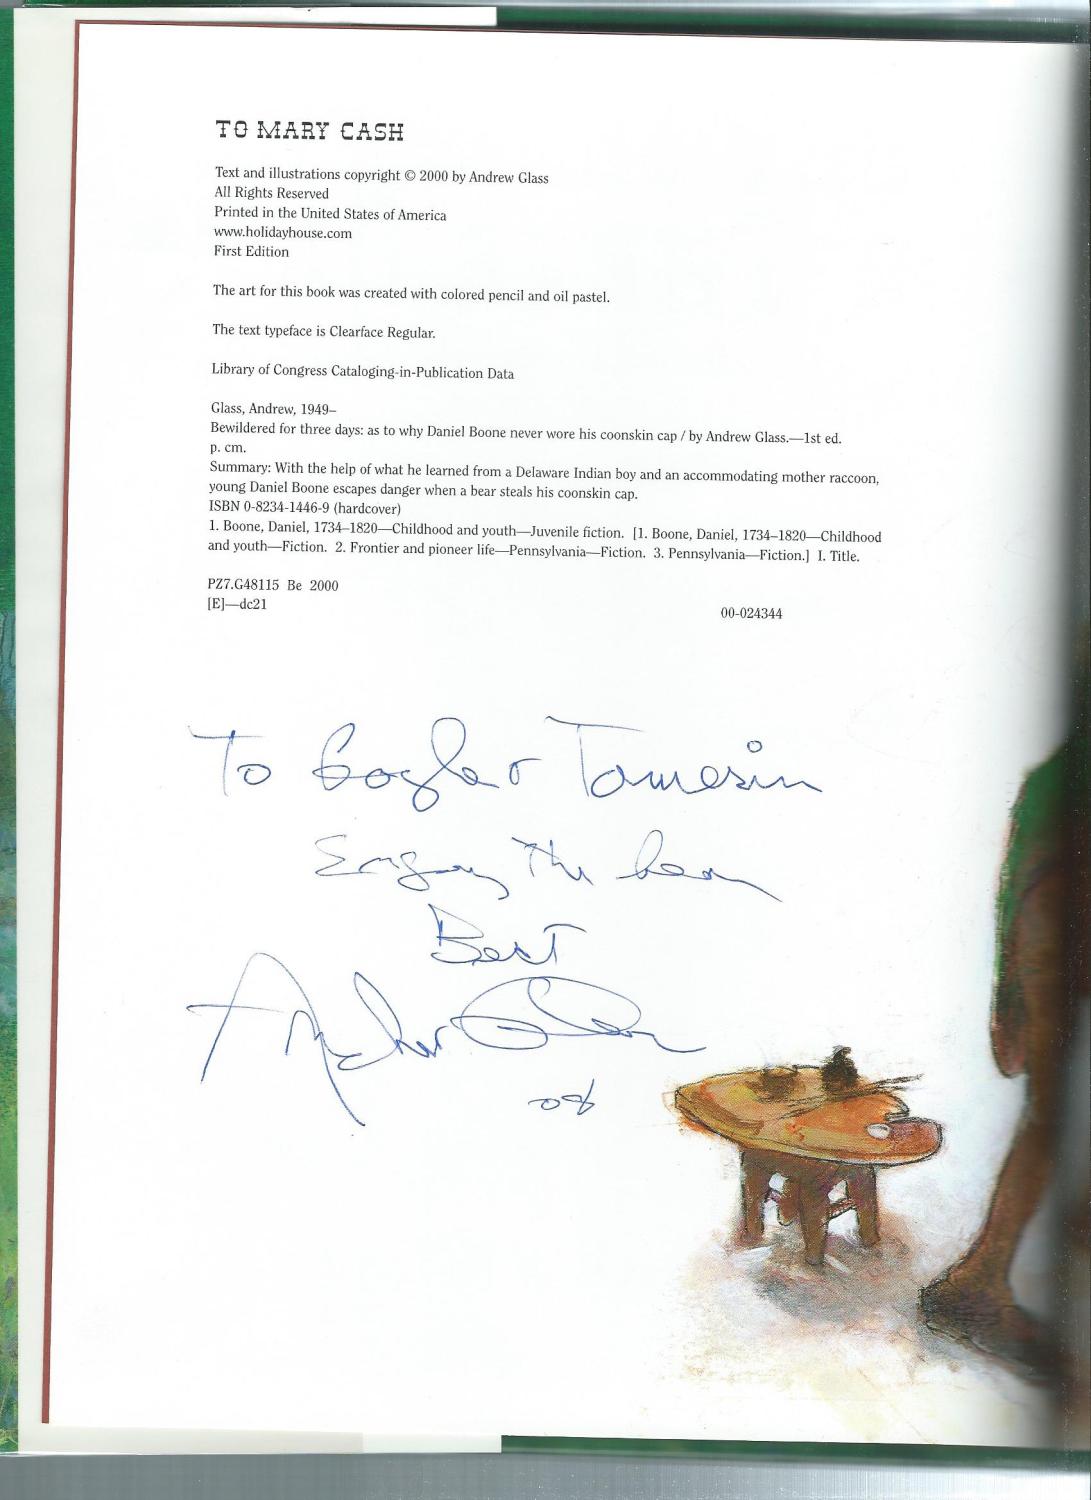 TO MARY CASH
Text and illustrations copyright © 2000 by Andrew Glass
All Rights Reserved
Printed in the United States of America
www.holidayhouse.com
First Edition
The art for this book was created with colored pencil and oil pastel.
The text typeface is Clearface Regular.
Library of Congress Cataloging-in-Publication Data
Glass, Andrew, 1949–
Bewildered for three days: as to why Daniel Boone never wore his coonskin cap / by Andrew Glass.—1st ed.
p. cm.
Summary: With the help of what he learned from a Delaware Indian boy and an accommodating mother raccoon,
young Daniel Boone escapes danger when a bear steals his coonskin cap.
ISBN 0-8234-1446-9 (hardcover)
1. Boone, Daniel, 1734–1820—Childhood and youth—Juvenile fiction. [1. Boone, Daniel, 1734–1820—Childhood
and youth—Fiction. 2. Frontier and pioneer life—Pennsylvania—Fiction. 3. Pennsylvania—Fiction.] I. Title.
PZ7.G48115 Be 2000
[E]—dc21
00-024344
To Tamesin
Enjoy The bear
Best
Andrew Glass
08